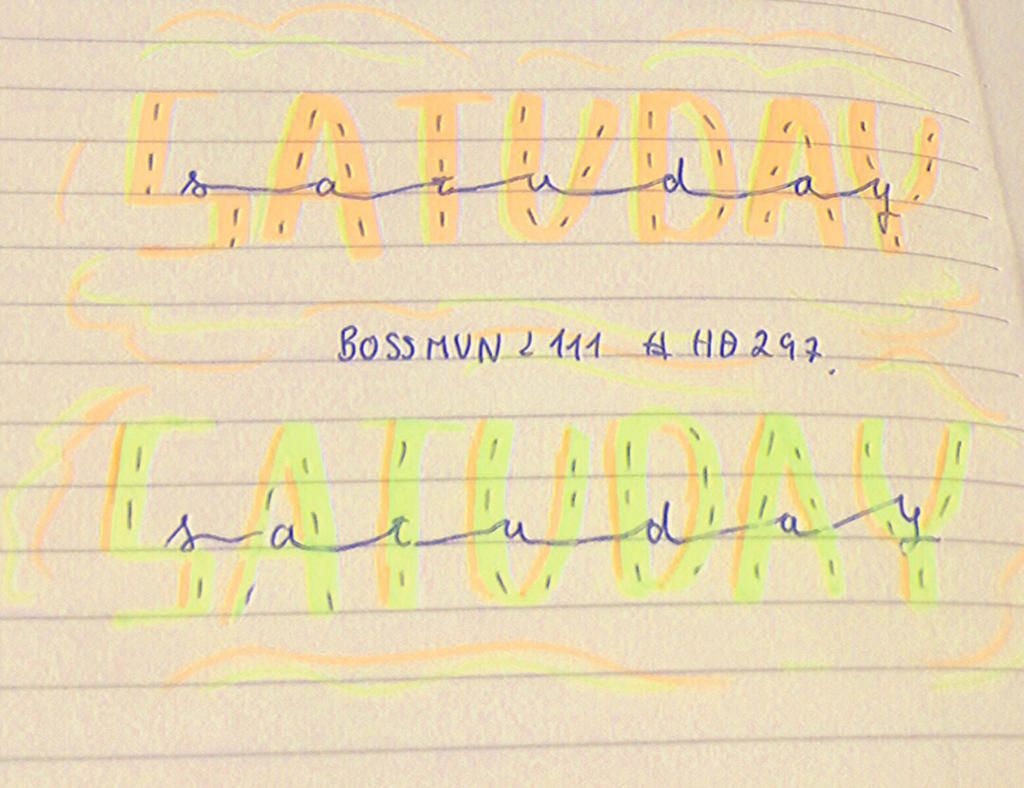 SATUDAY
satuday
BOSSMVN2111 # HD297.
SATUDAY
satuday